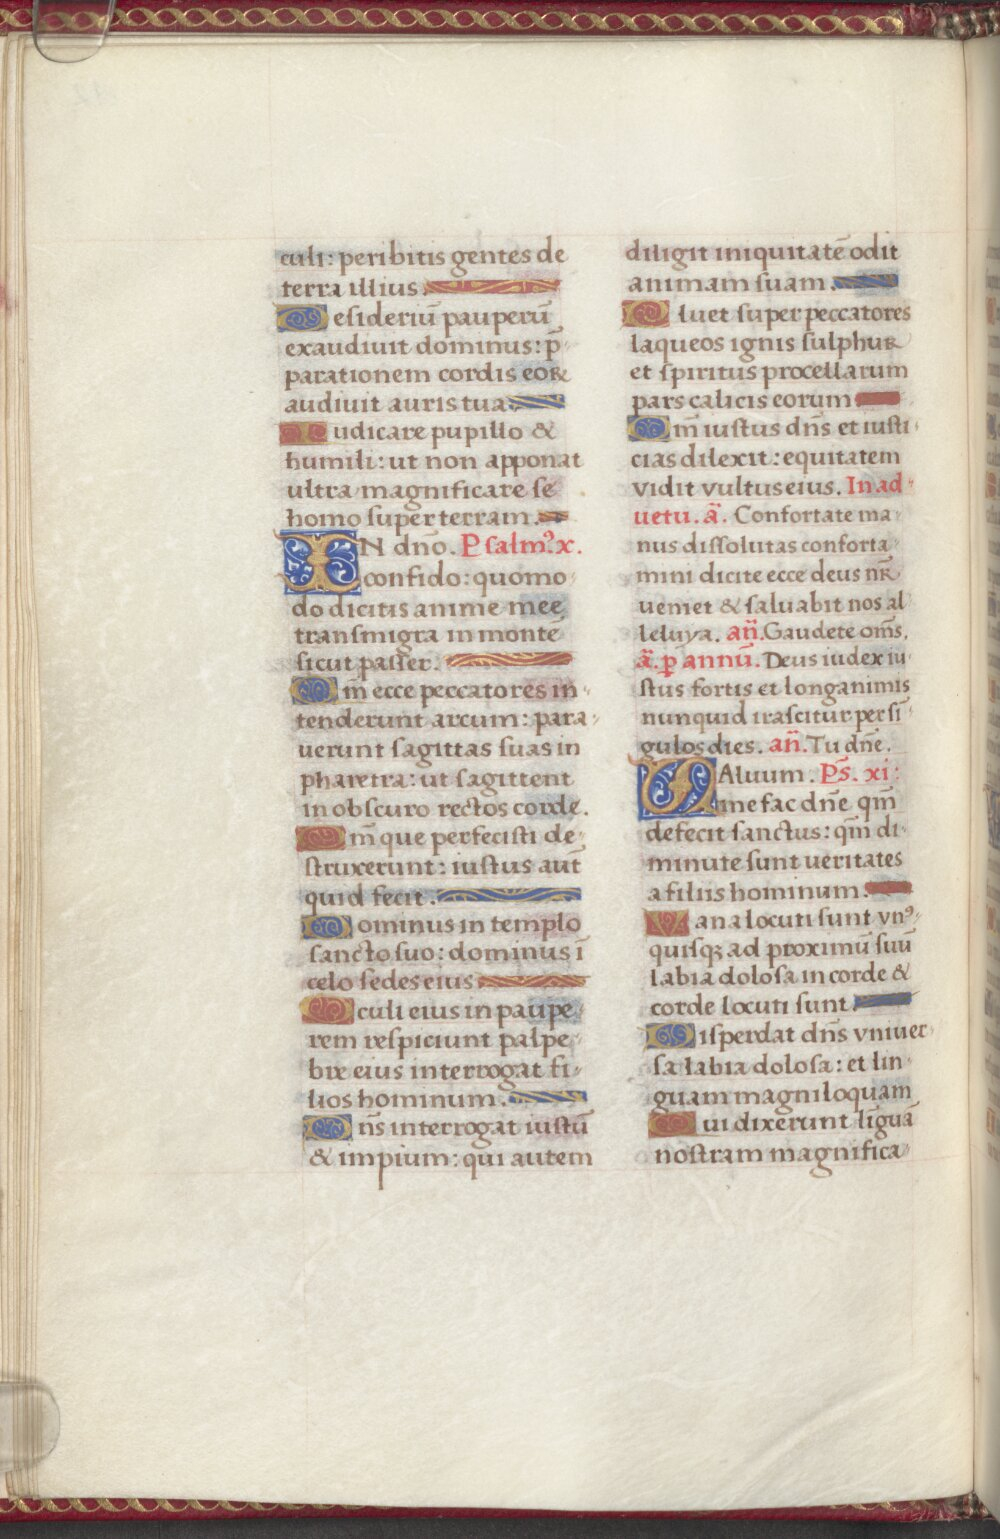 culi: peribitis gentes de
terra illius.
Desideriū pauperū
exaudiuit dominus: p̄
parationem cordis eoꝝ
audiuit auris tua.
Iudicare pupillo &
humili: ut non apponat
ultra magnificare se
homo super terram.
IN dn̄o. Psalmꝰ. x.
confido: quomo
do dicitis anime mee
transmigra in montē
sicut passer.
Qm̄ ecce peccatores in
tenderunt arcum: para
uerunt sagittas suas in
pharetra: ut sagittent
in obscuro rectos corde.
Qm̄ que perfecisti de
struxerunt: iustus aut̄
quid fecit.
Dominus in templo
sancto suo: dominus ī
celo sedes eius
Oculi eius in paupe
rem respiciunt palpe
bre eius interrogat fi
lios hominum.
Dn̄s interrogat iustū
& impium: qui autem
diligit iniquitatē odit
animam suam.
Pluet super peccatores
laqueos ignis sulphur
et spiritus procellarum
pars calicis eorum
Qm̄ iustus dn̄s et iusti
cias dilexit: equitatem
vidit vultus eius. In ad
uetu. ā. Confortate ma
nus dissolutas conforta
mini dicite ecce deus nr̄
ueniet & saluabit nos al
leluya. an̄. Gaudete om̄s.
ā. p annū. Deus iudex iu
stus fortis et longanimis
nunquid irascitur per sī
gulos dies. an̄. Tu dn̄e.
SAluum. Ps̄. xi:
me fac dn̄e qm̄
defecit sanctus: qm̄ di
minute sunt ueritates
a filiis hominum.
Vana locuti sunt vnꝰ
quisqꝫ ad proximū suū
labia dolosa in corde &
corde locuti sunt.
Disperdat dn̄s vniuer
sa labia dolosa: et lin
guam magniloquam
Qui dixerunt līguā
nostram magnifica